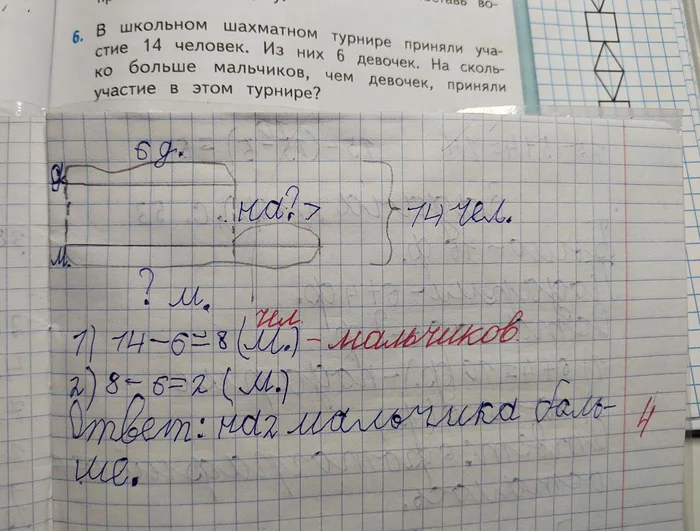 6. В школьном шахматном турнире приняли уча-
стие 14 человек. Из них 6 девочек. На сколь-
ко больше мальчиков, чем девочек, приняли
участие в этом турнире?
6 д.
д.
на ? >
14 чел.
м.
? м.
чел.
1) 14 – 6 = 8 (м.) – мальчиков
2) 8 – 6 = 2 (м.)
Ответ: на 2 мальчика боль-
ше.
4